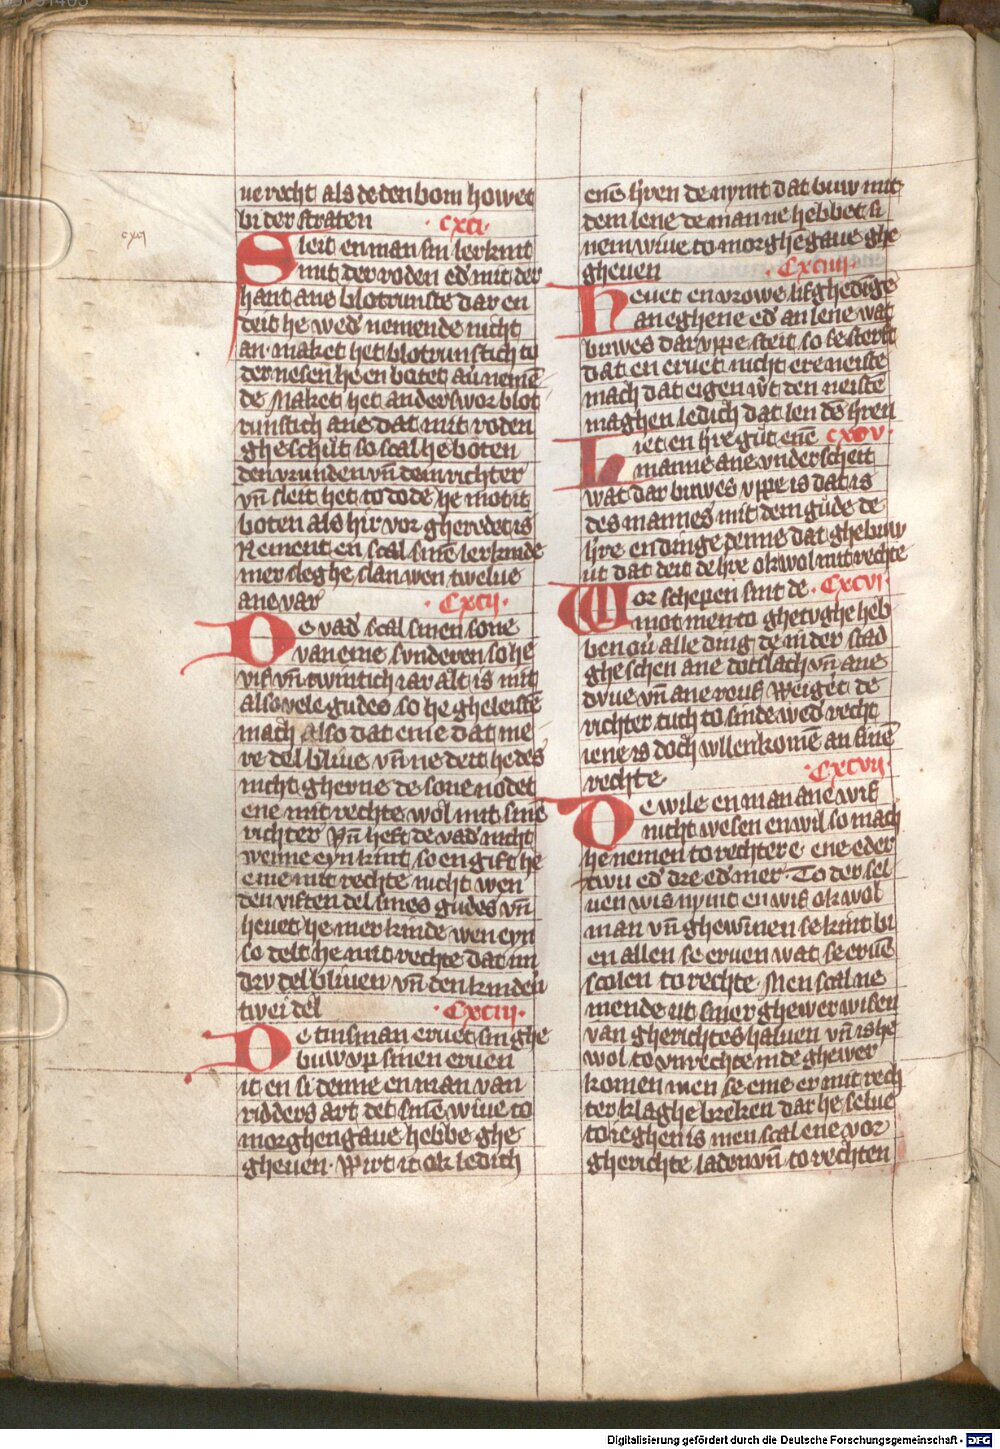 cxcj
ue recht als de den bom howet
bi der straten · cxci ·
Sleit en man sin lerkint
mit der roden ed' mit der
hant ane blotrunste dar en
deit he wed' nemende nicht
an · maket he it blotrunstich to
der nesen he en botet au' nemē
de Maket het anderswor blot
runstich ane dat mit roden
gheschut so scal he boten
den vrunden vn̄ dem richter
vn̄ sleit het to dode he mot it
boten als hir vor gheredet is
Nement en scal sinē lerkinde
mer sleghe slan wen twelue
ane var · Cxcii ·
De vad' scal sinen sone
van eme sunderen so he
vif vn̄ twintich iar alt is mit
also vele gudes so he gheleistē
mach also dat eme dat me
re del bliue vn̄ ne deit he des
nicht gherne de sone nodet
ene mit rechte wol mit sinē
richter Vn̄ heft de vad' nicht
wenne eyn kint so en gift he
eme mit rechte nicht wen
den viften del sines gudes vn̄
heuet he mer kinde wen eyn
so delt he mit rechte dat im
dry del bliuen vn̄ den kinden
twei del · Cxciii ·
De tinsman eruet sin ghe
buw vp sinen eruen
it en si denne en man van
ridders art det sinē wiue to
morghengaue hebbe ghe
gheuen · Wirt it ok ledich
enē h'ren de nymt dat buw mit
dem lene de man ne hebbet si
nem wiue to morghēgaue ghe
gheuen · Cxciiii ·
Heuet en vrowe lifghedīge
an eghene ed' an lene wat
buwes dar vppe steit so se sterft
dat en eruet nicht ere neiste
mach dat eigen w't den neistē
maghen ledich dat len dē h'ren
Let en h're gut enē cxcv ·
manne ane vnderscheit
wat dar buwes vppe is dat is
des mannes mit dem gude de
h're en dinge denne dat ghebuw
ut dat deit de h're ok wol mit rechte
Wor schepen sint de · Cxcvi ·
mot men to ghetughe heb
ben ou' alle ding de in der stad
gheschen ane dotslach vn̄ ane
duue vn̄ ane rouf Weig'et de
richter tuch to sinde wed' recht
iene is doch vullenkomē an sinē
rechte · Cxcvii ·
De wile en man ane wif
nicht wesen en wil so mach
he nemen to rechter e ene eder
twu ed' dre ed' mer To der sel
uen wis nymt en wif ok wol
man vn̄ ghewīnen se kint bi
en allen se eruen wat se eruē
scolen to rechte · Men scal ne
mende ut siner ghewer wisen
van gherichtes haluen vn̄ is he
wol to vnrechte in de ghewer
komen men se eme er mit rech
ter klaghe breken dar he selue
to ieghen is men scal ene vor
gherichte laden vn̄ to rechten
Digitalisierung gefördert durch die Deutsche Forschungsgemeinschaft - DFG